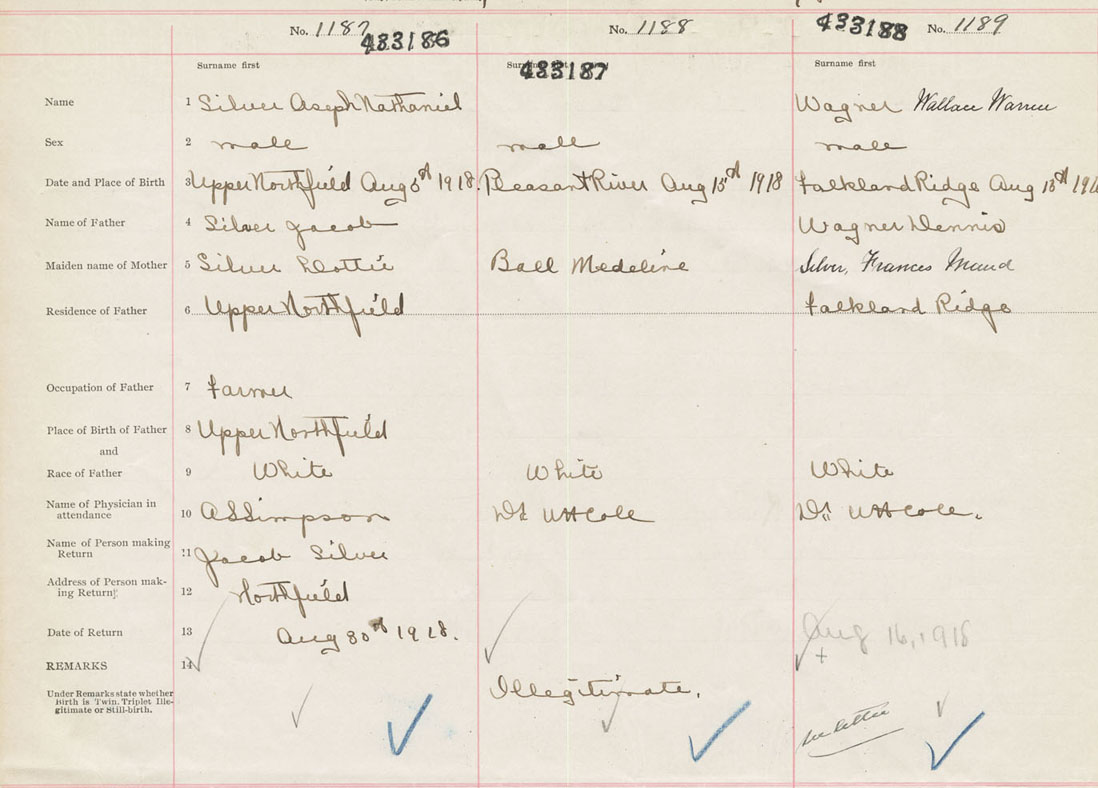 No. 1187 433186 No. 1188 433188 No. 1189
Surname first Surname first 433187 Surname first
Name 1 Silver Aseph Nathaniel Wagner Wallace Warren
Sex 2 male male male
Date and Place of Birth 3 Upper Northfield Aug 5th 1918. Pleasant River Aug 15th 1918 Falkland Ridge Aug 15th 191
Name of Father 4 Silver Jacob Wagner Dennis
Maiden name of Mother 5 Silver Lottie Ball Medeline Silver, Frances Maud
Residence of Father 6 Upper Northfield Falkland Ridge
Occupation of Father 7 Farmer
Place of Birth of Father 8 Upper Northfield
and
Race of Father 9 White White White
Name of Physician in
attendance 10 A S Simpson Dr. W H Cole Dr. W H Cole.
Name of Person making
Return 11 Jacob Silver
Address of Person mak-
ing Return 12 Northfield
Date of Return 13 Aug 30th 1918. Aug 16, 1918
REMARKS 14
Under Remarks state whether
Birth is Twin. Triplet Ille-
gitimate or Still-birth.
Illegitimate.
see letter